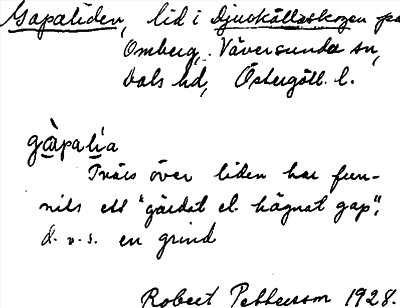 Gapaliden, lid i Djurkällaskogen på
Omberg, Väversunda sn,
Dals hd, Östergötl. l.
gàpalia
Tvärs över liden har fun-
nits ett "gärdat el. hägnat gap",
d.v.s. en grind
Robert Pettersson 1928.